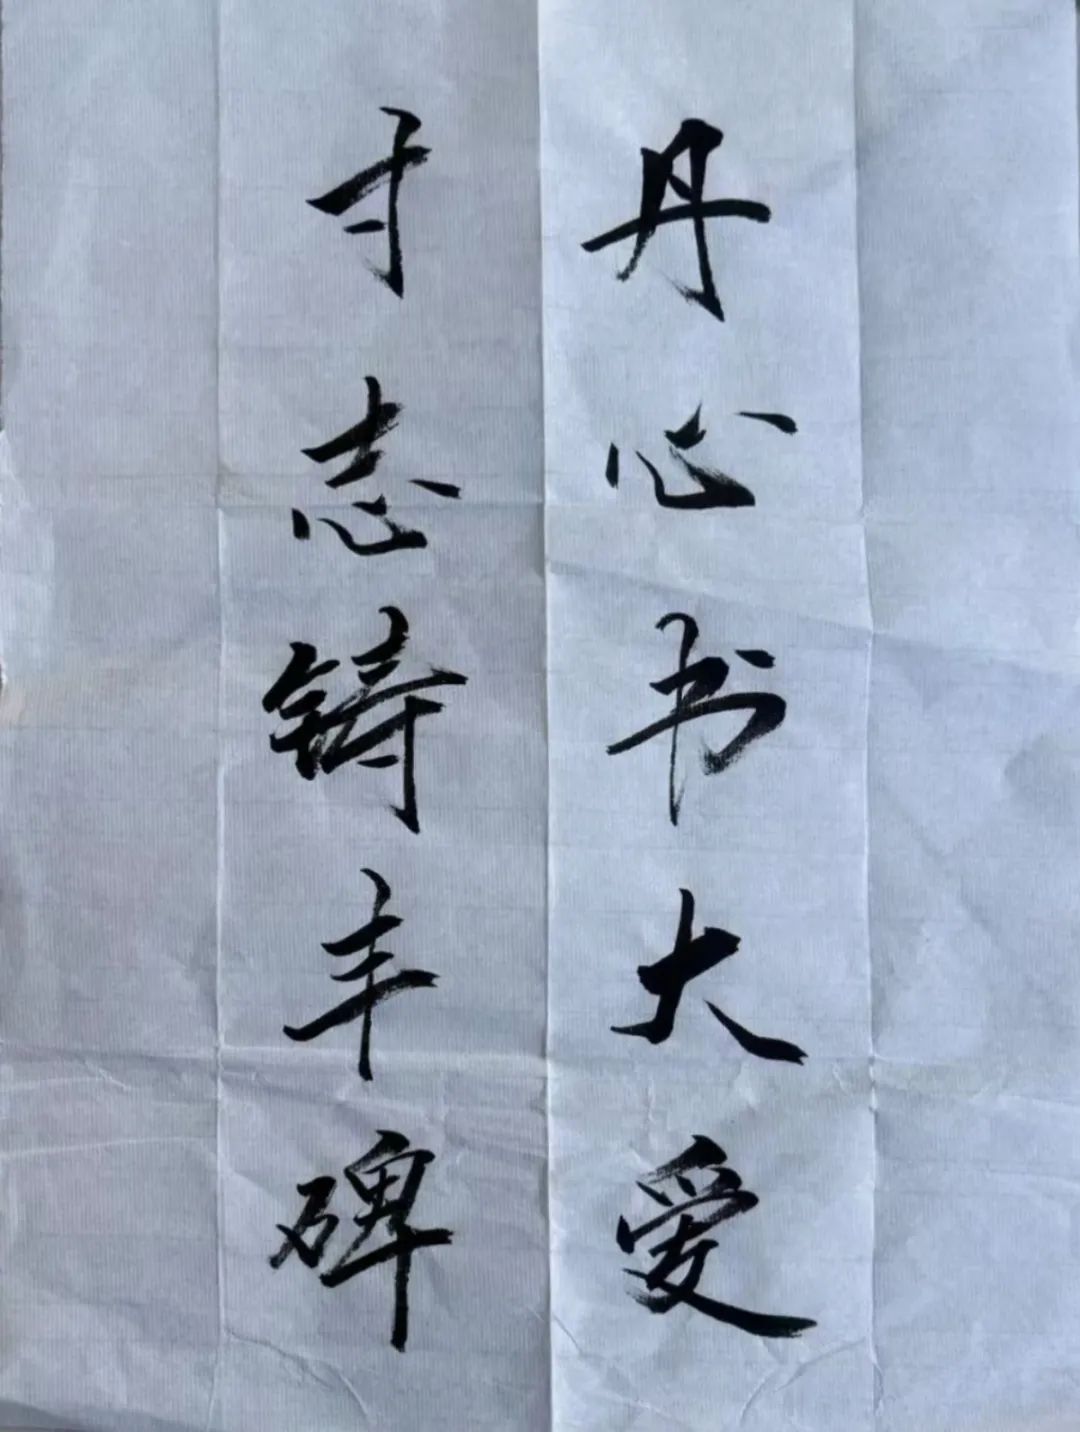 丹心书大爱
寸志铸丰碑